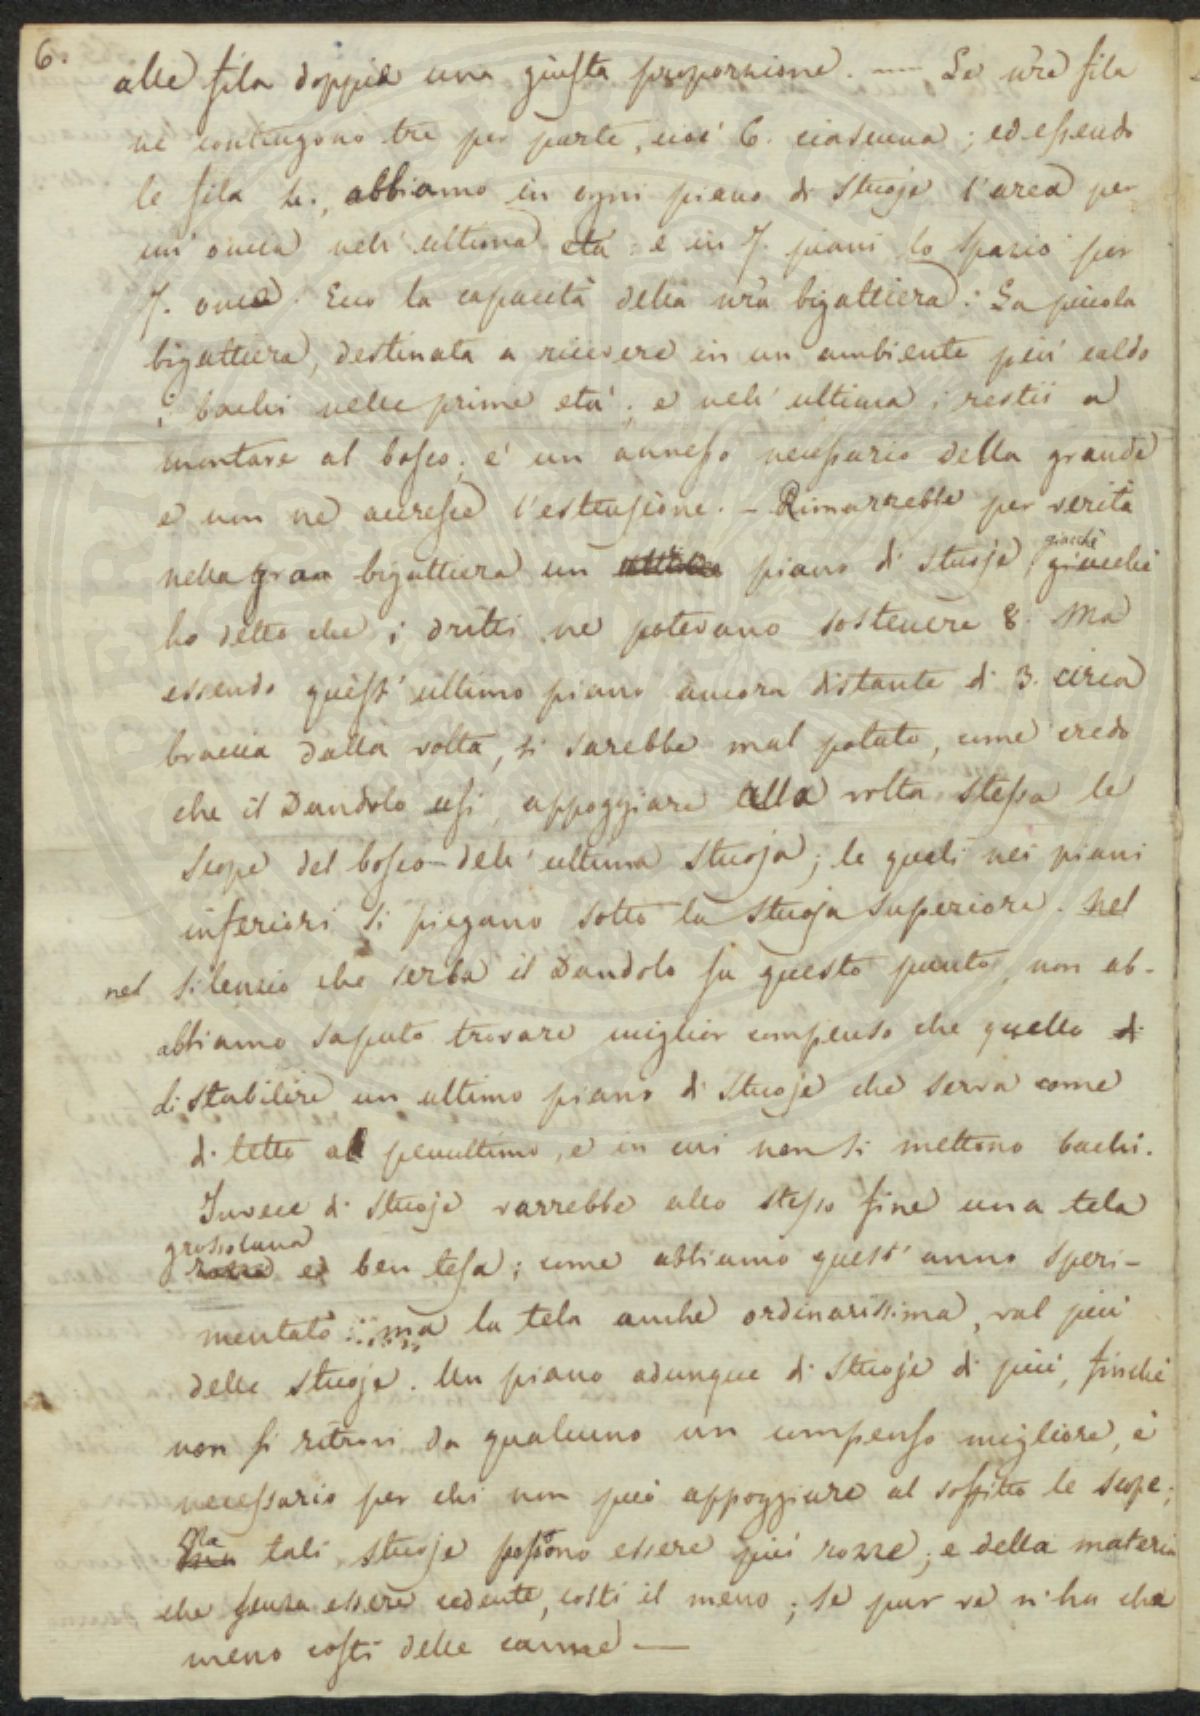 6.
alle fila doppie una giusta proporzione. — Le nre fila
ne contengono tre per parte, cioè 6. ciascuna; ed essendo
le fila 4., abbiamo in ogni piano di stuoje l'area per
un' oncia nell' ultima età: e in 7. piani lo spazio per
7. oncie. Ecco la capacità della nra bigattiera. La piccola
bigattiera, destinata a ricevere in un ambiente più caldo
i bachi nelle prime età; e nell' ultima i restii a
montare al bosco; è un annesso necessario della grande
e non ne accresce l'estensione. - Rimarrebbe per verità
nella gran bigattiera un piano di stuoje, giacchè giacchè
ho detto che i dritti ne potevano sostenere 8. Ma
essendo quest' ultimo piano ancora distante di 3. circa
braccia dalla volta, si sarebbe mal potuto, come credo
che il Dandolo usi, appoggiare alla volta stessa le
scope del bosco dell' ultima stuoja; le quali nei piani
inferiori si piegano sotto la stuoja superiore. Nel
nel silenzio che serba il Dandolo su questo punto, non ab-
abbiamo saputo trovare miglior compenso che quello di
di stabilire un ultimo piano di stuoje che serva come
di tetto al penultimo, e in cui non si mettono bachi.
Invece di stuoje varrebbe allo stesso fine una tela
grossolana
rozza e ben tesa; come abbiamo quest' anno speri-
mentato: ma la tela anche ordinarissima, val più
delle stuoje. Un piano adunque di stuoje di più, finchè
non si ritrovi da qualcuno un compenso migliore, è
necessario per chi non può appoggiare al soffitto le scope;
Ma tali stuoje possono essere più rozze; e della materia
che senza essere cedente, costi il meno; se pur ve n'ha che
meno costi delle canne —